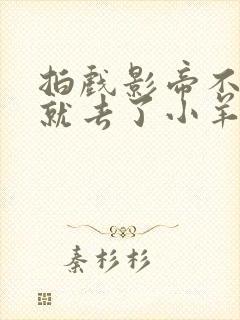 拍戏影帝不
就去了小羊
秦杉杉